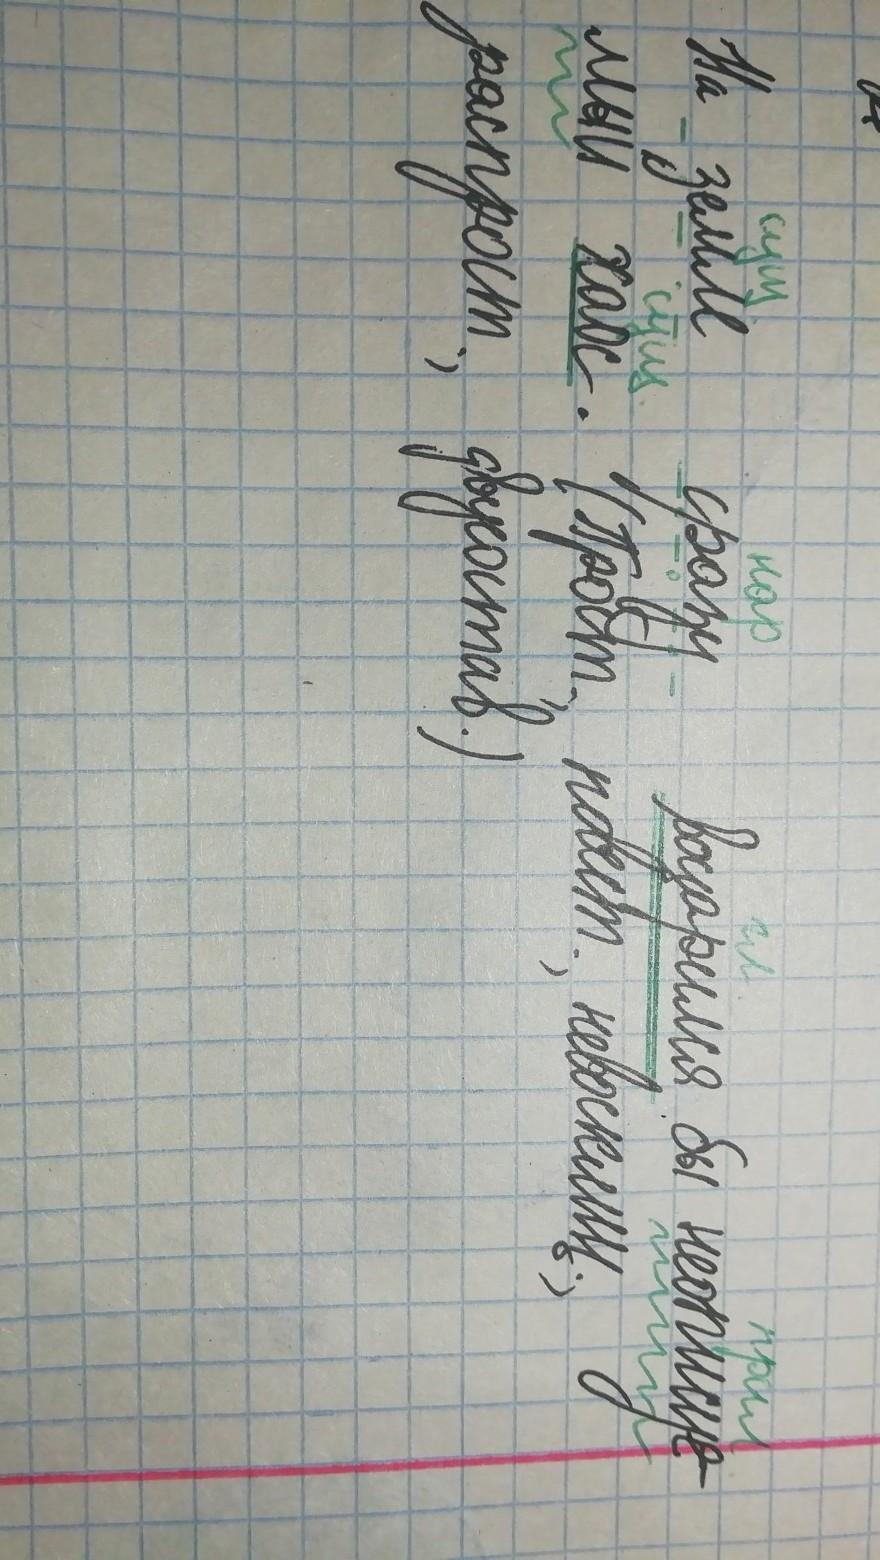 сущ. нар гл. прил
На земле сразу воцарился бы неописуе-
сущ.
мый хаос. (Прост., повест., невосклиц.,
распрост., двусостав.)